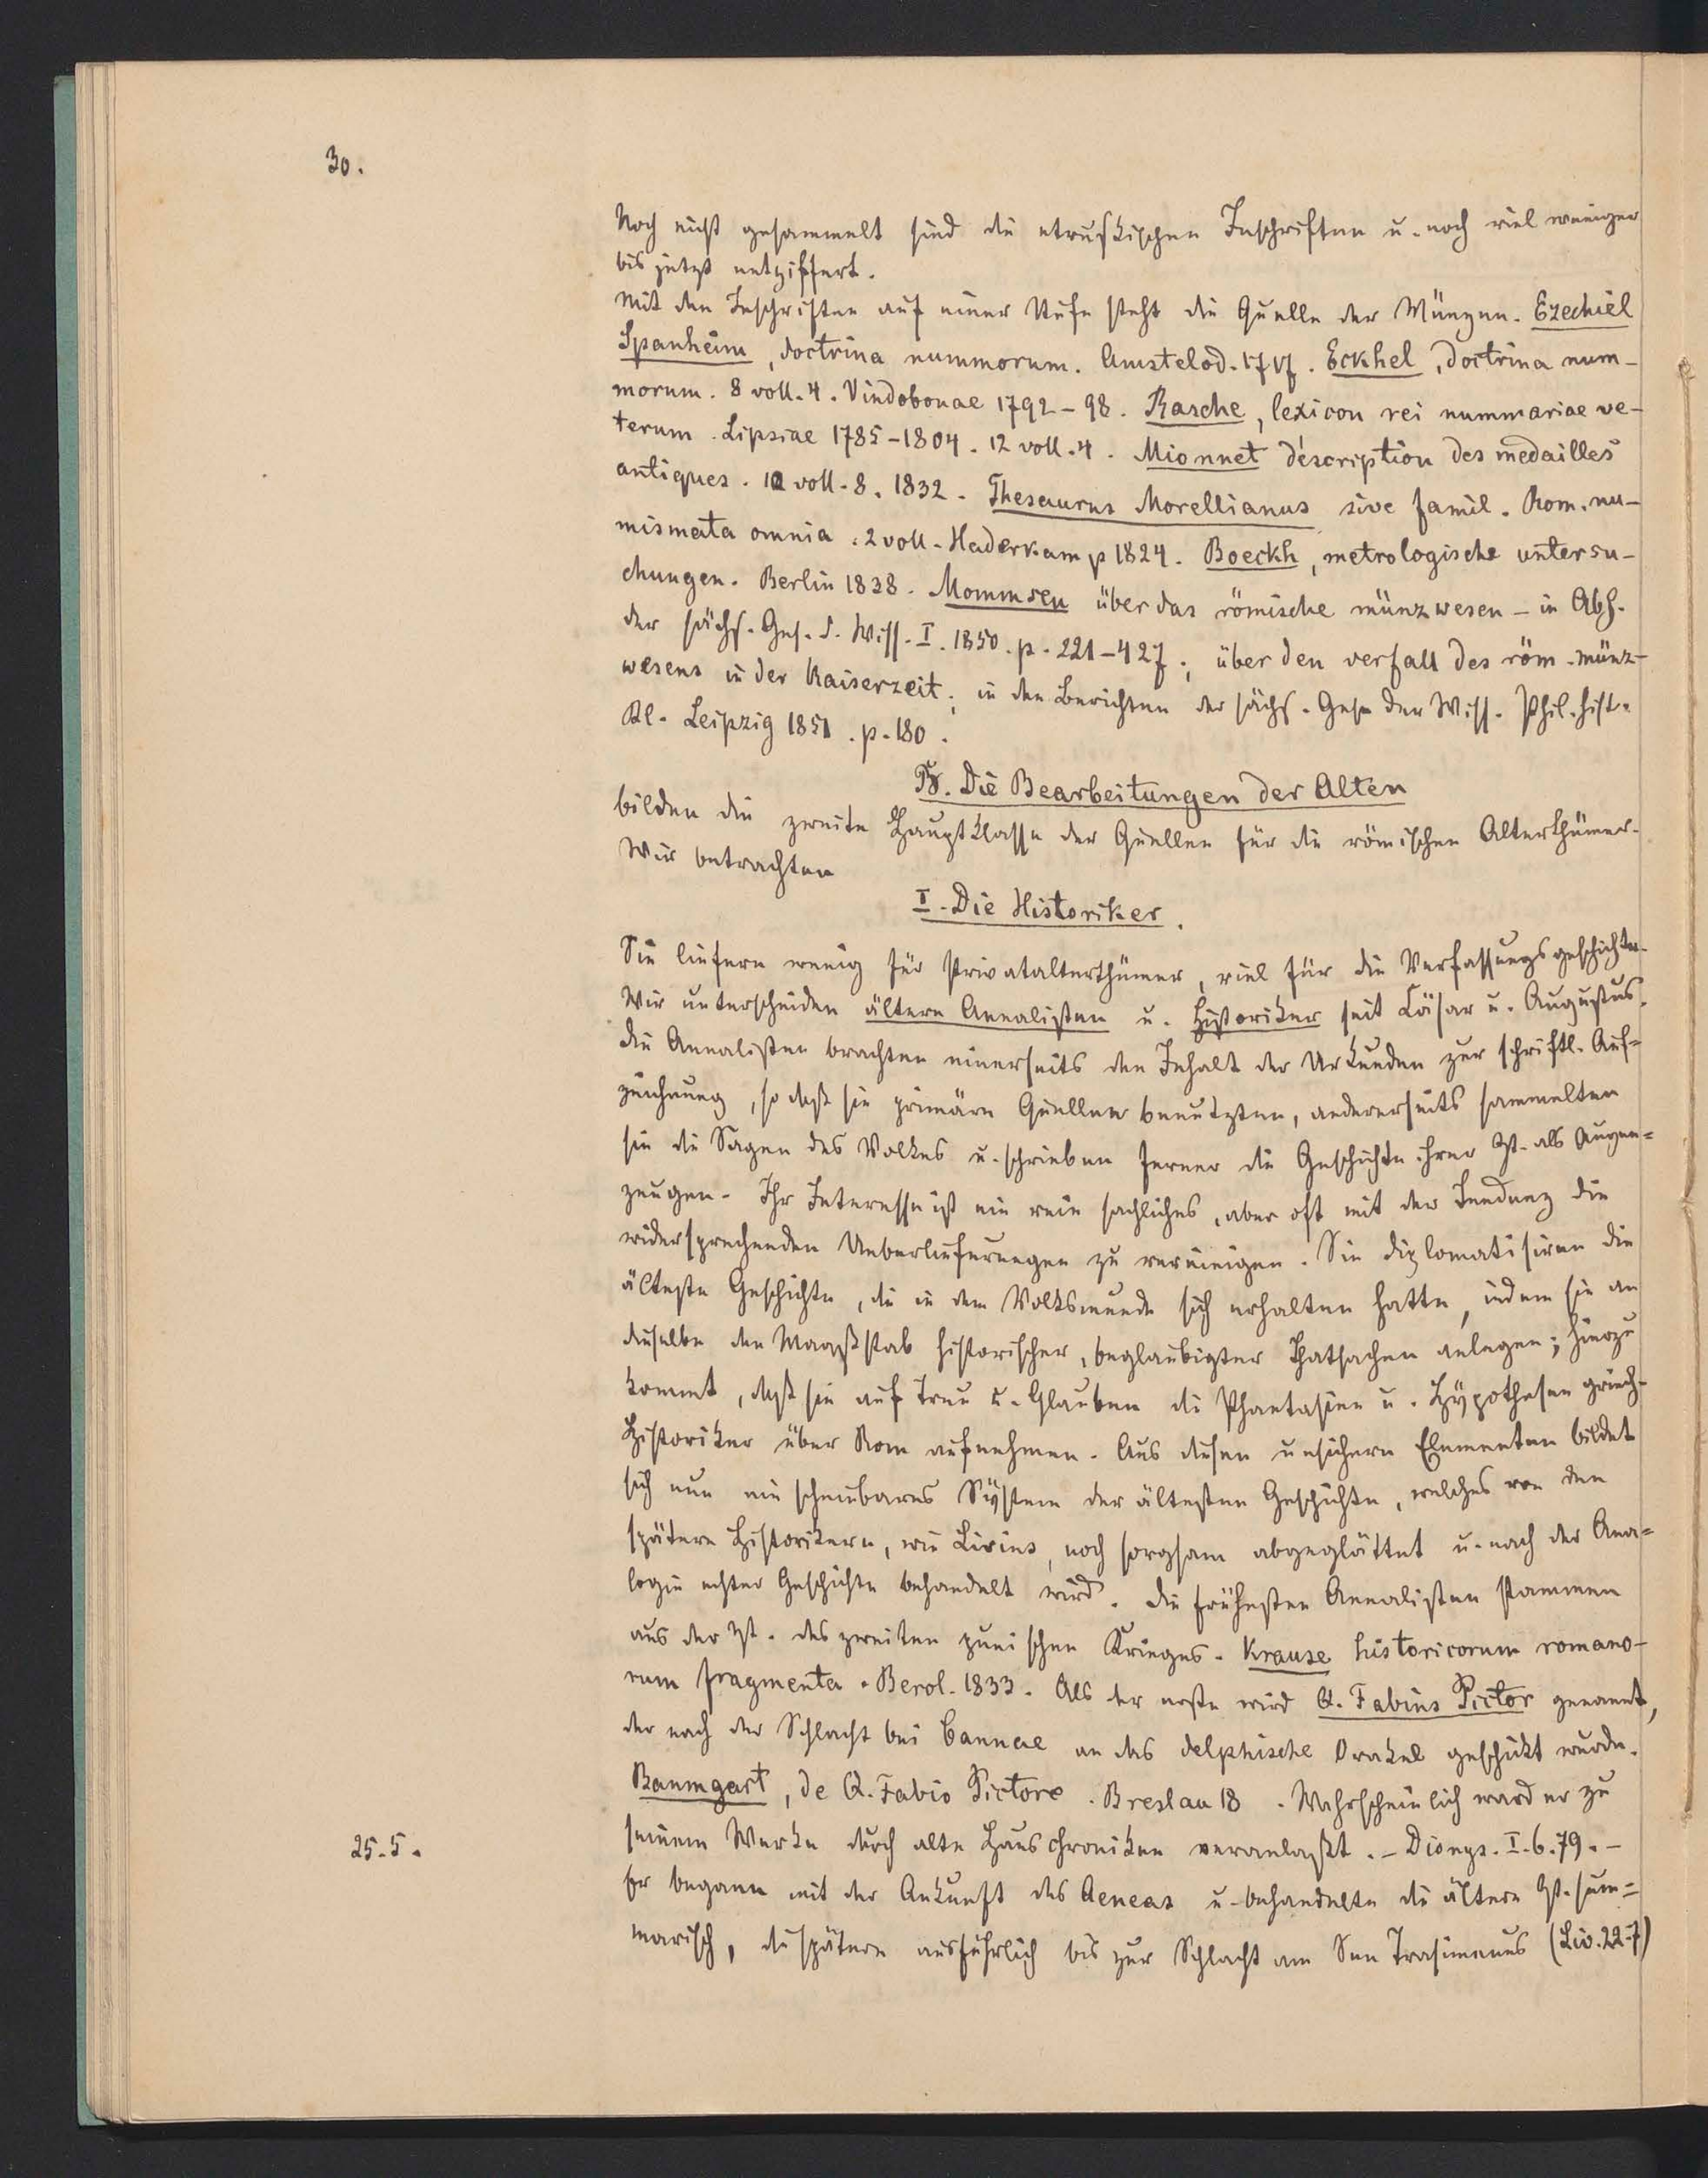 30.
Noch nicht gesammelt sind die etruskischen Inschriften u. noch viel weniger
bis jetzt entziffert.
Mit den Inschriften auf einer Stufe steht die Quelle der Münzen. Ezechiel
Spanheim, doctrina nummorum. Amstelod. 1717. Eckhel, doctrina num-
morum. 8 voll. 4. Vindobonae 1792-98. Rasche, lexicon rei nummariae ve-
terum. Lipsiae 1785-1804. 12 voll. 4. Mionnet déscription des medailles
antiques. 12 voll. 8. 1832. Thesaurus Morellianus sive famil. Rom. nu-
mismata omnia. 2 voll. Haderkamp 1824. Boeckh, metrologische untersu-
chungen. Berlin 1838. Mommsen über das römische münzwesen - in Abh.
der sächs. Ges. d. Wiss. I. 1850. p. 221-427; über den verfall des röm. münz-
wesens in der Kaiserzeit; in den Berichten der sächs. Ges. der Wiss. Phil. hist.
Kl. Leipzig 1851. p. 180.
B. Die Bearbeitungen der Alten
bilden die zweite Hauptklasse der Quellen für die römischen Alterthümer.
Wir betrachten
I. Die Historiker.
Sie liefern wenig für Privatalterthümer, viel für die Verfassungsgeschichte.
Wir unterscheiden ältere Annalisten u. Historiker seit Cäsar u. Augustus.
Die Annalisten brachten einerseits den Inhalt der Urkunden zur schriftl. Auf=
zeichnung, so daß sie primäre Quellen benutzten, andererseits sammelten
sie die Sagen des Volkes u. schrieben ferner die Geschichte ihrer Zt. als Augen=
zeugen. Ihr Interesse ist ein rein sachliches, aber oft mit der Tendenz die
widersprechenden Ueberlieferungen zu vereinigen. Sie diplomatisiren die
älteste Geschichte, die in dem Volksmunde sich erhalten hatte, indem sie an
dieselbe den Maaßstab historischer, beglaubigter Thatsachen anlegen; hierzu
kommt, daß sie auf Treu u. Glauben die Phantasien u. Hypothesen griech.
Historiker über Rom aufnehmen. Aus diesen unsichern Elementen bildet
sich nun ein scheinbares System der ältesten Geschichte, welches von den
spätern Historikern, wie Livius, noch sorgsam abgeglättet u. nach der Ana=
logie echter Geschichte behandelt wird. Die frühesten Annalisten stammen
aus der Zt. des zweiten punischen Krieges. Krause historicorum romano-
rum fragmenta. Berol. 1833. Als der erste wird Q. Fabius Pictor genannt,
der nach der Schlacht bei Cannae an das delphische Orakel geschickt wurde.
Baumgart, de Q. Fabio Pictore. Breslau 18 . Wahrscheinlich ward er zu
25. 5.
seinem Werke durch alte Hauschroniken veranlaßt. - Dionys. I. 6. 79. -
Er begann mit der Ankunft des Aeneas u. behandelte die ältere Zt. sum=
marisch, die spätere ausführlich bis zur Schlacht am See Trasimenus (Liv. 22. 7)